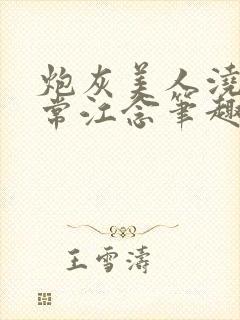 炮灰美人浇
常江念笔趣
王雪涛